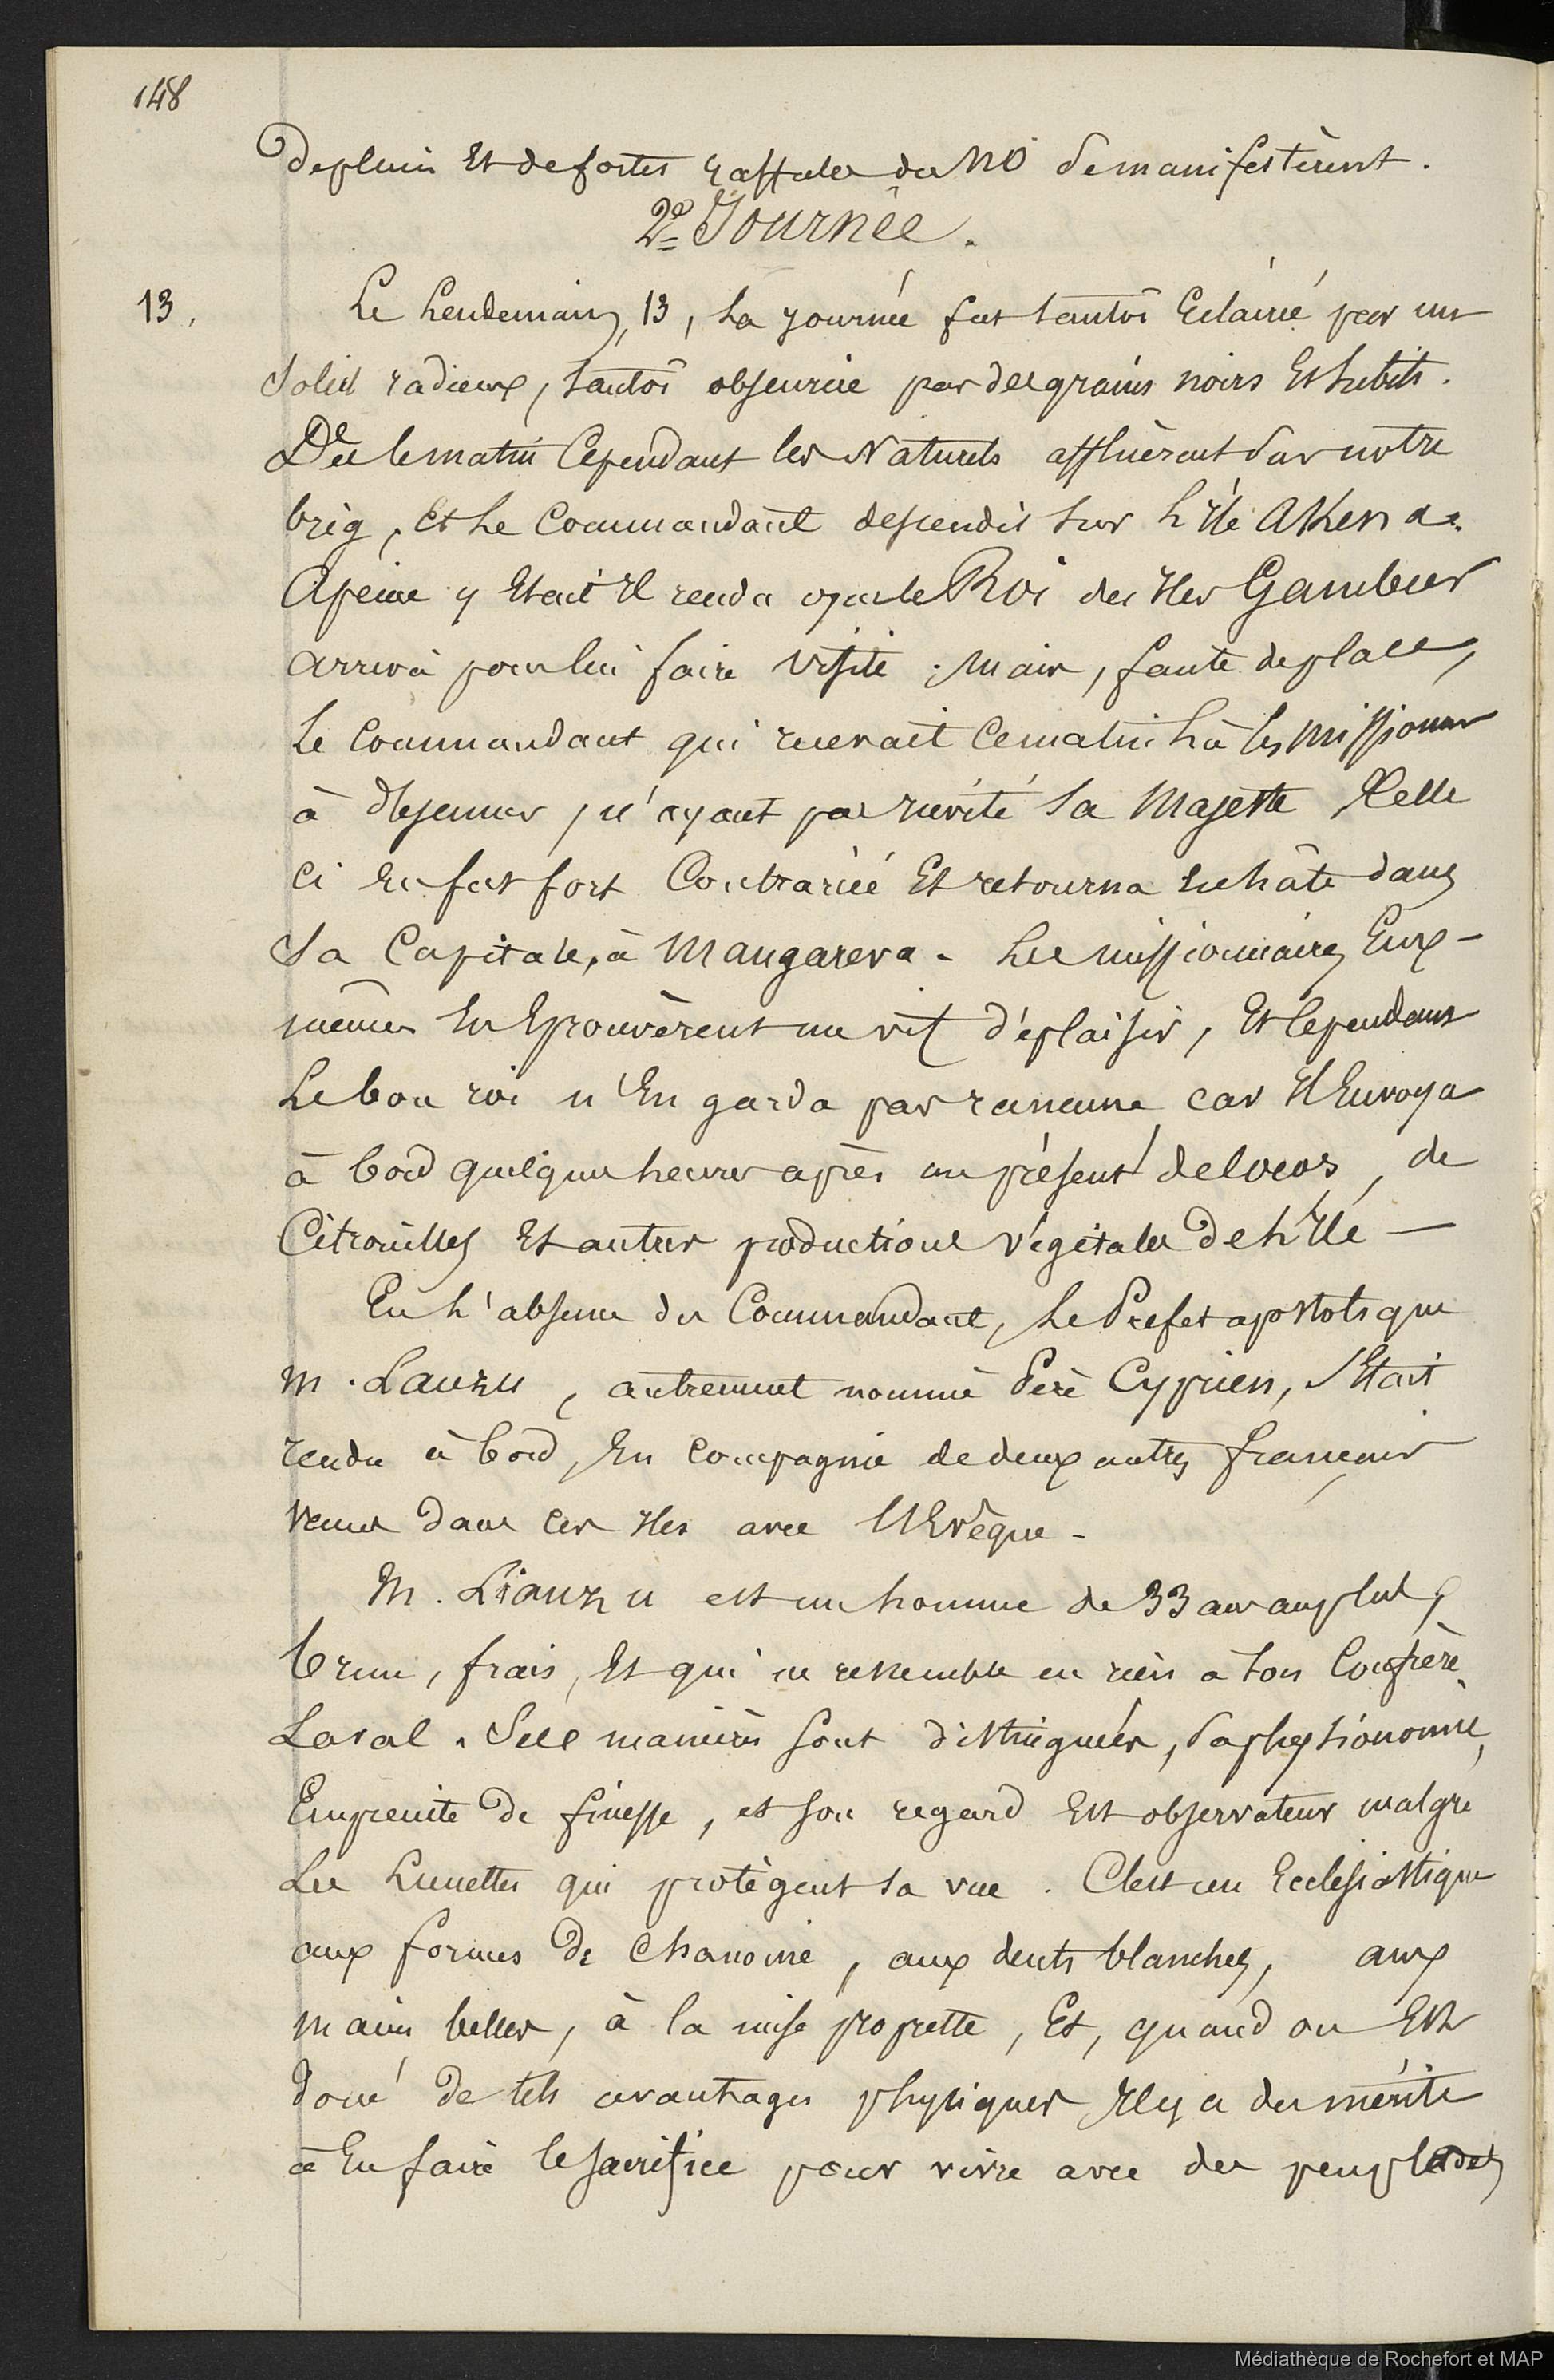 148
De pluie Et de fortes raffales du NO se manifestèrent.
2e Journée.
13.
Le Lendemain, 13, La journée fut tantôt Eclairée par un
Soleil radieux, tantôt obscurcie par des grains noirs Et subits.
Dès le matin Cependant les Naturels affluèrent sur notre
brig, Et Le Commandant descendit sur L'Ile Akena.
Apeine y Etait Il rendu que le Roi des Iles Gambier
arriva pour lui faire visite. Mais, faute de place,
Le Commandant qui recevait Ce matin Là les missionnaires
à déjeuner, n'ayant pas invité Sa Majesté, Celle
Ci En fut fort Contrariée Et retourna En hâte dans
Sa Capitale, à Mangareva. Les missionnaires Eux-
mêmes En Eprouvèrent un vif déplaisir, Et Cependant
Le bon roi n'En garda pas rancune car Il Envoya
à bord quelques heures après un présent de cocos, de
Citrouilles Et autres productions végétales De L'Ile —
En L'absence du Commandant, Le Préfet apostolique
M. Liauzu, autrement nommé Père Cyprien, s'Etait
rendu à bord, En Compagnie de deux autres français
venus dans Ces Iles avec l'Evêque -
M. Liauzu est un homme de 33 ans au plus,
brun, frais, Et qui ne ressemble en rien à son Confrère
Laval. Ses manières sont distinguées, sa physionomie,
Empreinte De finesse, et son regard Est observateur malgré
Les Lunettes qui protègent sa vue. C'est un Ecclésiastique
aux formes De Chanoine, aux dents blanches, aux
mains belles, à la mise proprette, Et, quand on Est
doué De tels avantages physiques Il y a du mérite
à En faire le sacrifice pour vivre avec des peuplades
Médiathèque de Rochefort et MAP